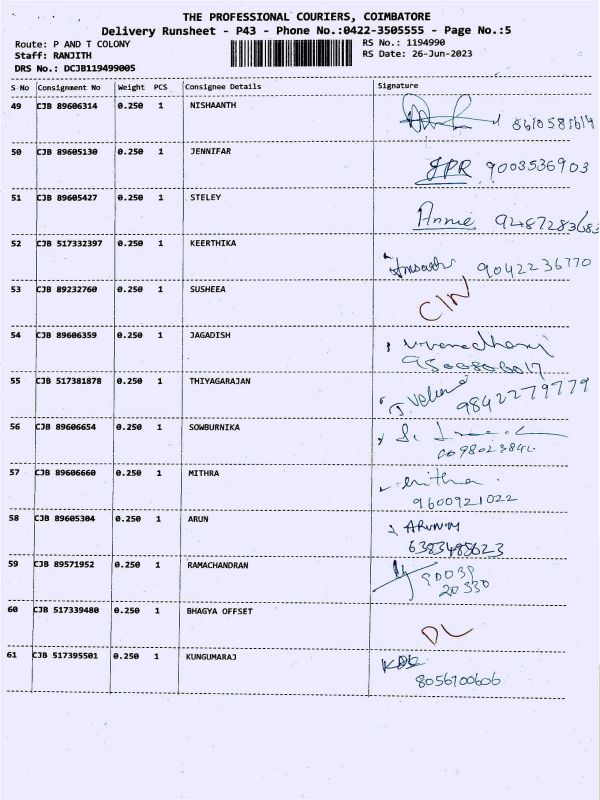 THE PROFESSIONAL COURIERS, COIMBATORE
Delivery Runsheet - P43 - Phone No.:0422-3505555 - Page No.:5
Route: P AND T COLONY
RS No.: 1194990
Staff: RANJITH
RS Date: 26-Jun-2023
DRS No.: DCJB119499005
S No Consignment No Weight PCS Consignee Details Signature
49 CJB 89606314 0.250 1 NISHAANTH
8610581619
50 CJB 89605130 0.250 1 JENNIFAR
JPR 9003536903
51 CJB 89605427 0.250 1 STELEY
Annie 9487283683
52 CJB 517332397 0.250 1 KEERTHIKA
9042236770
53 CJB 89232760 0.250 1 SUSHEEA
CIN
54 CJB 89606359 0.250 1 JAGADISH
55 CJB 517381878 0.250 1 THIYAGARAJAN
9842279779
56 CJB 89606654 0.250 1 SOWBURNIKA
57 CJB 89606660 0.250 1 MITHRA
9600921022
58 CJB 89605304 0.250 1 ARUN
6383485623
59 CJB 89571952 0.250 1 RAMACHANDRAN
90039
20330
60 CJB 517339480 0.250 1 BHAGYA OFFSET
DL
61 CJB 517395501 0.250 1 KUNGUMARAJ
8056700606